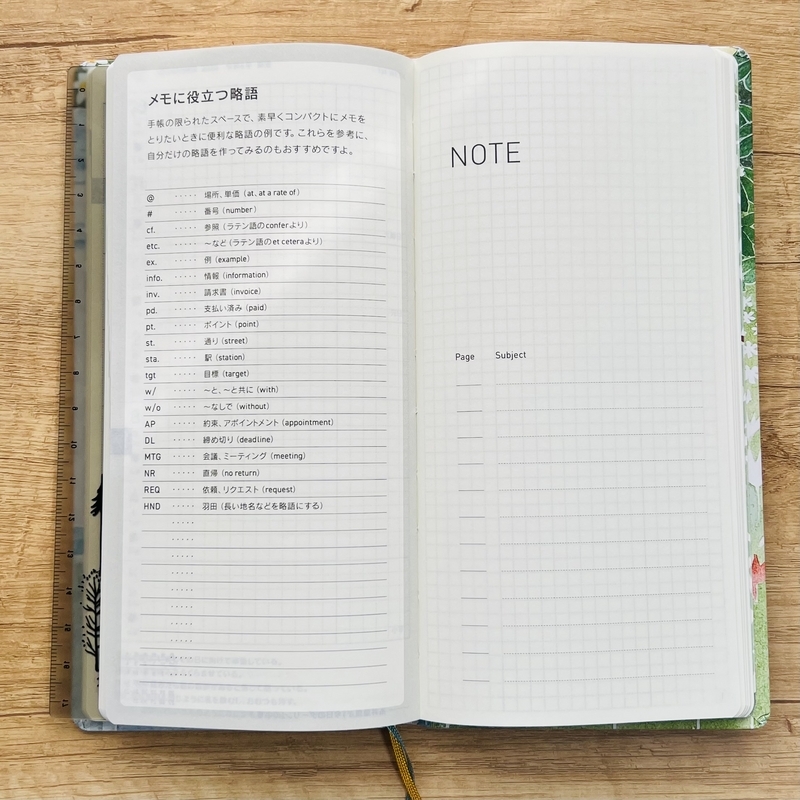 メモに役立つ略語
手帳の限られたスペースで、素早くコンパクトにメモを
とりたいときに便利な略語の例です。これらを参考に、
自分だけの略語を作ってみるのもおすすめですよ。
@ ····· 場所、単価（at、at a rate of）
# ····· 番号（number）
cf. ····· 参照（ラテン語のconferより）
etc. ····· ～など（ラテン語のet ceteraより）
ex. ····· 例（example）
info. ····· 情報（information）
inv. ····· 請求書（invoice）
pd. ····· 支払い済み（paid）
pt. ····· ポイント（point）
st. ····· 通り（street）
sta. ····· 駅（station）
tgt ····· 目標（target）
w/ ····· ～と、～と共に（with）
w/o ····· ～なしで（without）
AP ····· 約束、アポイントメント（appointment）
DL ····· 締め切り（deadline）
MTG ····· 会議、ミーティング（meeting）
NR ····· 直帰（no return）
REQ ····· 依頼、リクエスト（request）
HND ····· 羽田（長い地名などを略語にする）
NOTE
Page Subject